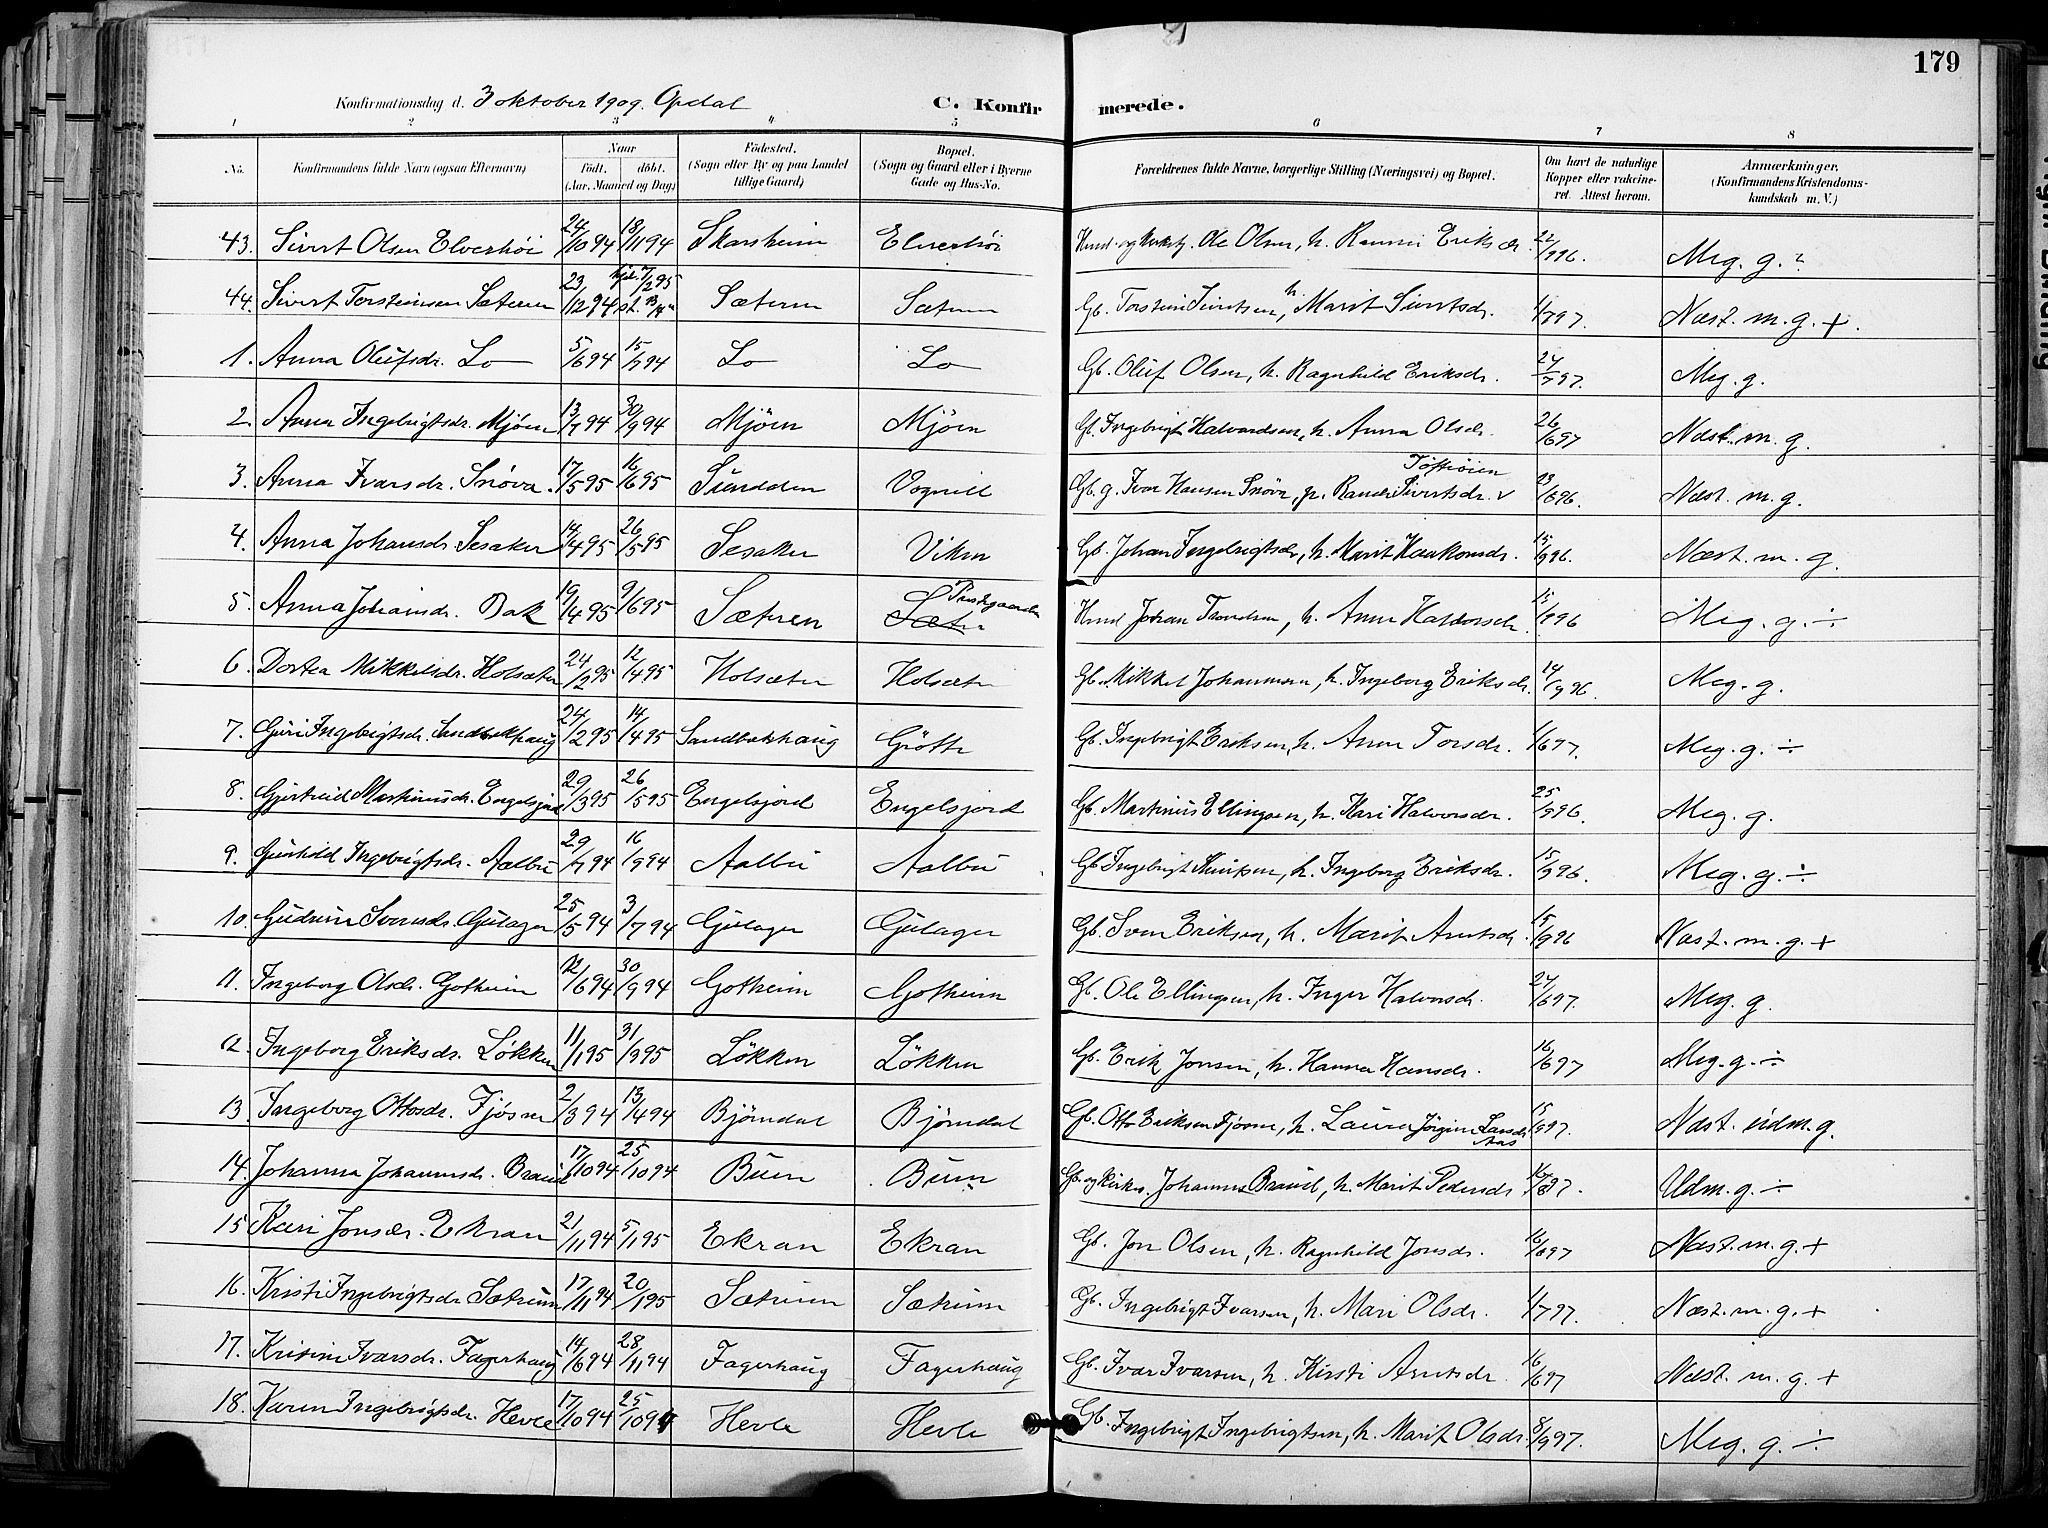 179
Konfirmationsdag d. 3 oktober 1909. Opdal C. Konfirmerede.
1 2 3 4 5 6 7 8
No. Konfirmandens fulde Navn (ogsaa Efternavn) Naar födt. döbt. (Aar, Maaned og Dag) Födested. (Sogn eller By og paa Landet tillige Gaard) Bopæl. (Sogn og Gaard eller i Byerne Gade og Hus-No. Forældrenes fulde Navne, borgerlige Stilling (Næringsvei) og Bopæl. Om havt de naturlige Kopper eller vakcineret. Attest herom. Anmærkninger. (Konfirmandens Kristendomskundskab m. V.)
43. Sivert Olsen Elverhöi 24/10 94 18/11 94 Skarsheim Elverhöi Ole Olsen, h. Eriksdr. 22/9 96. Meg. g.
44. Sivert Torsteinsen Sæteren 23/12 94 hjd. 7/2 95 Sæteren Sæteren Gb. Torstein Sivertsen, h. Marit Sivertsdr. 1/7 97. Næst. m. g. +.
1. Anna Olufsdr. Lo 5/6 94 15/7 94 Lo Lo Gb. Oluf Olsen, h. Ragnhild Eriksdr. 24/7 97. Meg. g.
2. Anna Ingebrigtsdr. Mjöen 13/7 94 30/9 94 Mjöen Mjöen Gb. Ingebrigt Halvardsen, h. Anna Olsdr. 26/6 97. Næst. m. g.
3. Anna Ivarsdr. Snöva. 17/5 95 16/6 95 Sundden Vognill Gb. g. Ivar Hansen Snöva, p. Sivertsdr. 23/6 96. Næst. m. g.
4. Anna Johansdr. Sesaker 14/4 95 26/5 95 Sesaker Viken Gb. Johan Ingebrigtsen, h. Marit Haakonsdr. 15/9 96. Næst. m. g.
5. Anna Johansdr. Bak 19/4 95 9/6 95 Sæteren Sæter Prestegaarden Hmd. Johan Trondsen, h. Anne Haldorsdr. 15/9 96 Meg. g. ÷
6. Dortea Mikkelsdr. Holsæter 24/2 95 12/4 95 Holsæter Holsæter Gb. Mikkel Johannesen, h. Ingeborg Eriksdr. 14/9 96. Meg. g.
7. Guri Ingebrigtsdr. Sandbækhaug 24/2 95 14/4 95 Sandbækhaug Götte Gb. Ingebrigt Eriksen, h. Anne Torsdr. 1/6 97. Meg. g. ÷
8. Gjertrud Martinusdr. Engelsjord 29/3 95 26/5 95 Engelsjord Engelsjord Gb. Martinus Ellingsen, h. Kari Halvorsdr. 25/9 96. Meg. g.
9. Gunhild Ingebrigtsdr. Aalbu 29/7 94 16/9 94 Aalbu Aalbu Gb. Ingebrigt h. Ingeborg Eriksdr. 15/9 96. Meg. g. ÷
10. Gudrun Svensdr. Gulager 25/5 94 3/7 94 Gulager Gulager Gb. Sven Eriksen, h. Marit Arntsdr. 15/9 96 Næst. m. g. +
11. Ingeborg Olsdr. Gotheim 12/6 94 30/9 94 Gotheim Gotheim Gb. Ole Ellingsen, h. Inger Halvorsdr. 24/6 97. Meg. g.
12. Ingeborg Eriksdr. Lökken 11/1 95 31/3 95 Lökken Lökken Gb. Erik Jonsen, h. Hanna Hansdr. 16/6 97 Meg. g. ÷
13. Ingeborg Ottosdr. Fjösne 2/3 94 13/4 94 Björndal Björndal Gb. Otto Eriksen Fjösne, h. Laura Jörgine Larsdr. Aas 15/9 97. Næst. udm. g.
14. Johanna Johannesdr. Brauel 17/10 94 25/10 94 Buen Buen Gb. og Kirkes. Johannes Brauel, h. Marit Pedersdr. 16/6 97. Udm. g. ÷
15 Kari Jonsdr. Ekran 21/11 94 5/1 95 Ekran Ekran Gb. Jon Olsen, h. Ragnhild Jonsdr. 16/6 97 Næst. m. g. +
16. Kristi Ingebrigtsdr. Sætrum 17/11 94 20/1 95 Sætrum Sætrum Gb. Ingebrigt Ivarsen, h. Mari Olsdr. 1/7 97. Næst. m. g. +
17. Kristine Ivarsdr. Fagerhaug 14/6 94 28/11 94 Fagerhaug Fagerhaug Gb. Ivar Ivarsen, h. Kirsti Arntsdr. 16/6 97 Næst. m. g. +
18. Karen Ingebrigtsdr. Hevle 17/10 94 25/10 94 Hevle Hevle Gb. Ingebrigt Ingebrigtsen, h. Marit Olsdr. 8/9 97. Meg. g. ÷